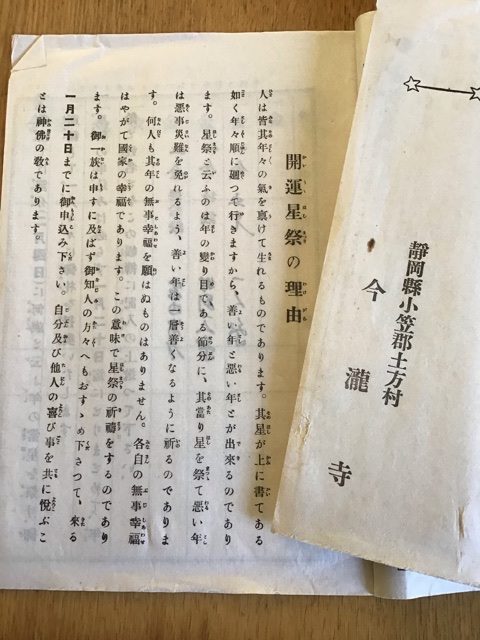 靜岡縣小笠郡土方村
今瀧寺
開運星祭の理由
人は皆其年々の氣を禀けて生れるものであります。其星が上に書てある
如く年々順に廻つて行きますから、善い年と悪い年とが出來るのであり
ます。星祭と云ふのは年の變り目である節分に、其當り星を祭て悪い年
は悪事災難を免れるよう、善い年は一層善くなるように祈るのでありま
す。何人も其年の無事幸福を願はぬものはありません。各自の無事幸福
はやがて國家の幸福であります。この意味で星祭の祈禱をするのであり
ます。御一族は申すに及ばず御知人の方々へもおすゝめ下さつて、來る
一月二十日までに御申込み下さい。自分及び他人の喜び事を共に悅ぶこ
とは神佛の敎であります。